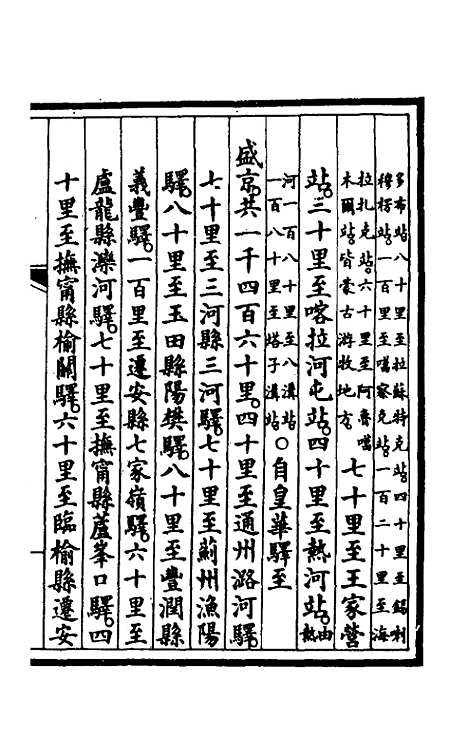 多布站八十里至拉蘇特克站四十里至錫喇
穆楞站一百里至噶察克站一百二十里至海
拉扎克站六十里至阿魯噶
木爾站皆蒙古游牧地方　七十里至王家營
站三十里至喀拉河屯站四十里至熱河站由熱
河一百八十里至八溝站
一百八十里至塔子溝站〇自皇華驛至
盛京共一千四百六十里四十里至通州潞河驛
七十里至三河縣三河驛七十里至薊州漁陽
驛八十里至玉田縣陽樊驛八十里至豐潤縣
義豐驛一百里至遷安縣七家嶺驛六十里至
盧龍縣灤河驛七十里至撫甯縣蘆峯口驛四
十里至撫甯縣榆關驛六十里至臨榆縣遷安